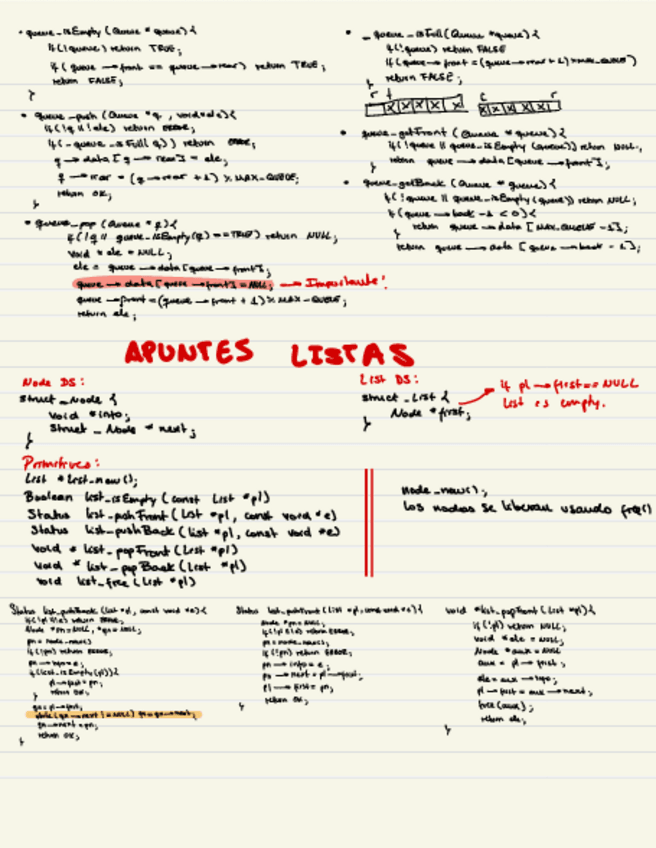 • queue_isEmpty (Queue * queue) {
if (!queue) return TRUE;
if ( queue → front == queue → rear) return TRUE;
return FALSE;
}
• queue_push (Queue *q , void *ele) {
if ( !q || !ele) return ERROR;
if ( _queue_isFull q)) return ERROR;
q → data [ q → rear] = ele;
q → rear = (q → rear + 1) % MAX_QUEUE;
return OK;
}
• queue_pop (Queue * q) {
if ( !q || queue_isEmpty(q) == TRUE) return NULL;
void * ele = NULL;
ele = queue → data [queue → front];
queue → data [queue → front] = NULL; → Importante!
queue → front = (queue → front + 1) % MAX_QUEUE;
return ele;
• _queue_isFull (Queue *queue) {
if (!queue) return FALSE
if (queue → front = (queue → rear + 1) % MAX_QUEUE)
return FALSE;
}
• queue_getFront ( Queue * queue) {
if ( !queue || queue_isEmpty (queue)) return NULL;
} return queue → data [queue → front];
• queue_getBack ( Queue * queue) {
if ( !queue || queue_isEmpty (queue)) return NULL;
if (queue → back - 1 < 0) {
} return queue → data [ MAX_QUEUE - 1];
return queue → data [ queue → back - 1];
APUNTES LISTAS
Node DS:
struct _Node {
void *info;
struct _Node * next;
}
List DS:
struct _List {
Node *first;
}
→ if pl → first == NULL
List is empty.
Primitives:
List *list_new();
Boolean list_isEmpty (const List *pl)
Status list_pushFront (List *pl, const void *e)
Status list_pushBack (List *pl, const void *e)
void * list_popFront (List *pl)
void * list_popBack (List *pl)
void list_free (List *pl)
node_new();
Los nodos se liberan usando free()
Status list_pushBack (List *pl, const void *e) {
if (!pl || !e) return ERROR;
Node *pn = NULL, *qn = NULL;
pn = node_new()
if (!pn) return ERROR;
pn → info = e;
if (list_isEmpty(pl)) {
pl → first = pn;
return OK;
}
qn = pl → first;
while (qn → next != NULL) qn = qn → next;
qn → next = pn;
return OK;
}
Status list_pushFront (List *pl, const void *e) {
Node *pn = NULL;
if (!pl || !e) return ERROR;
pn = node_new();
if (!pn) return ERROR;
pn → info = e;
pn → next = pl → first;
pl → first = pn;
return OK;
}
void *list_popFront (List *pl) {
if (!pl) return NULL;
void * ele = NULL;
Node * aux = NULL
aux = pl → first;
ele = aux → info;
pl → first = aux → next;
free (aux);
return ele;
}